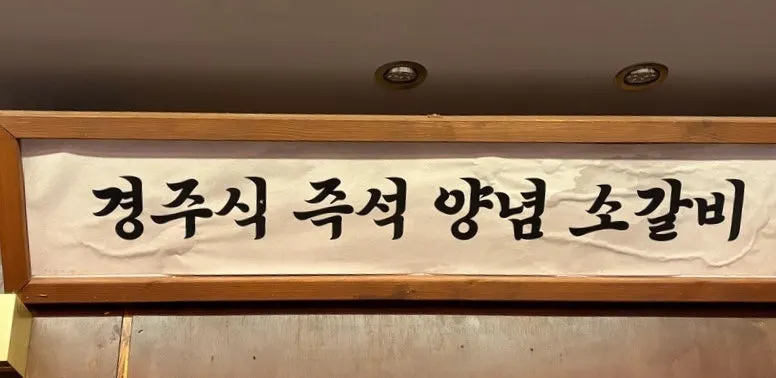 경주식 즉석 양념 소갈비